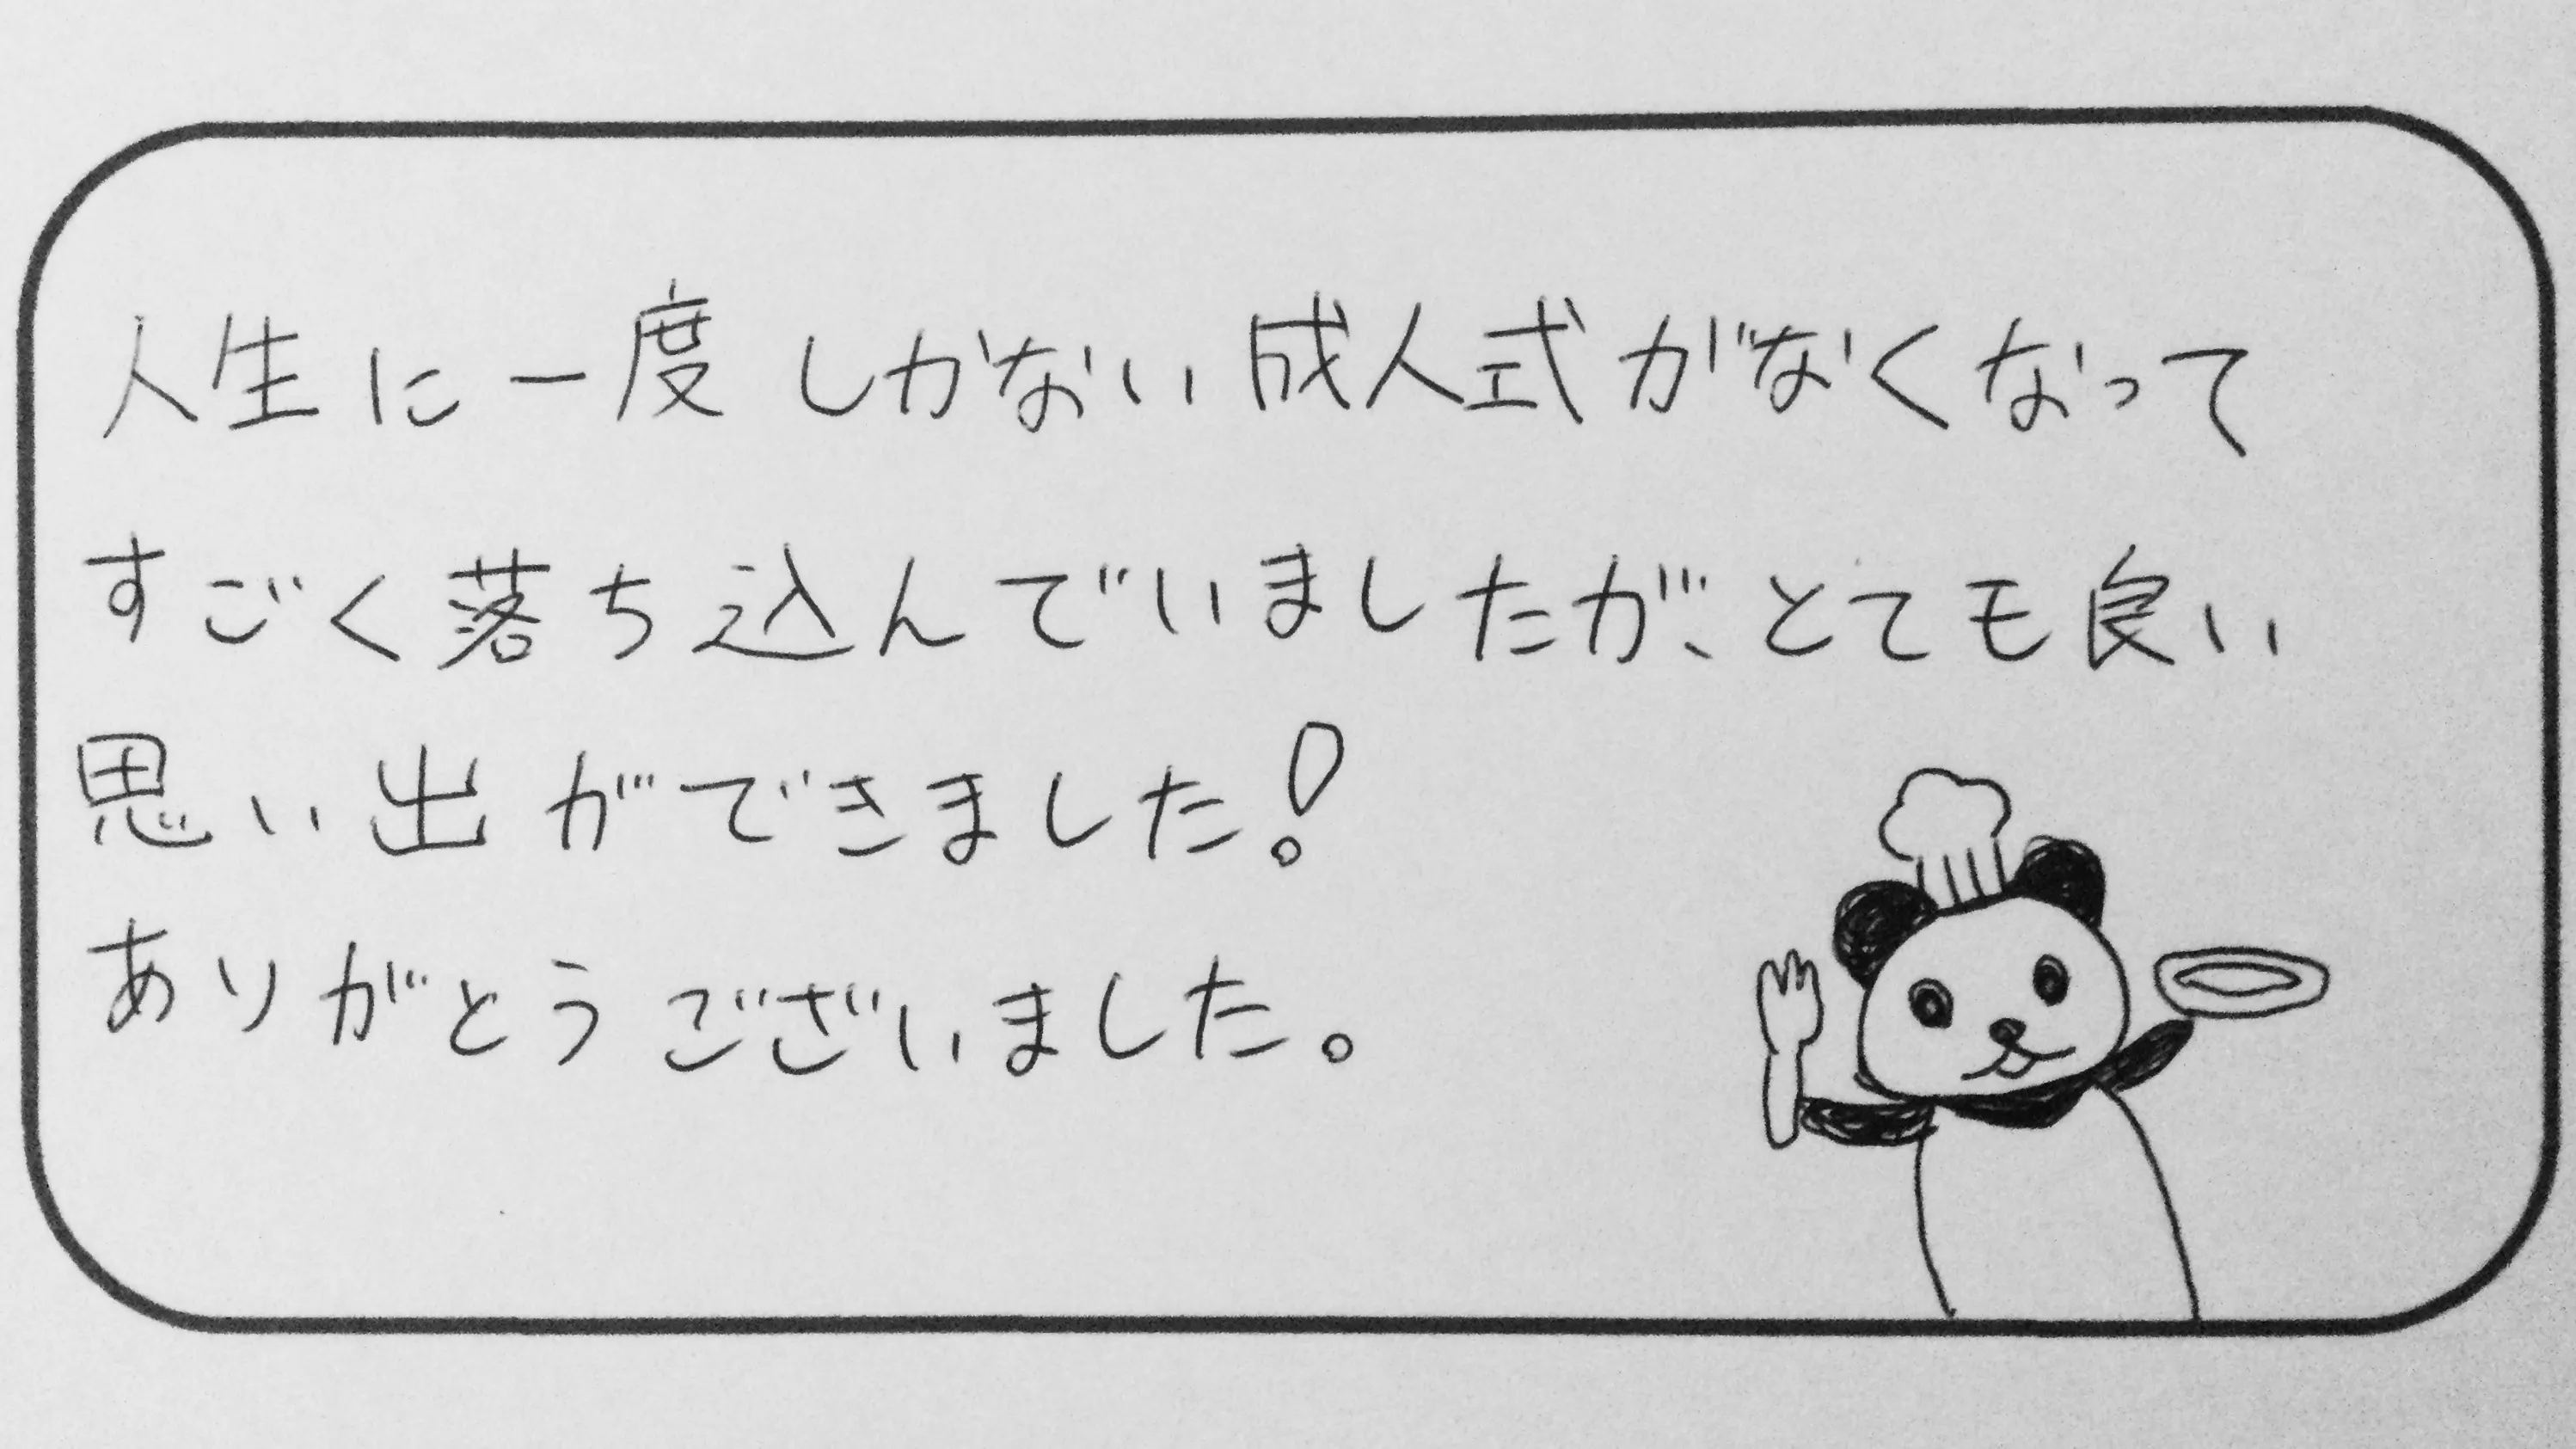 人生に一度しかない成人式がなくなって
すごく落ち込んでいましたが、とても良い
思い出ができました!
ありがとうございました。